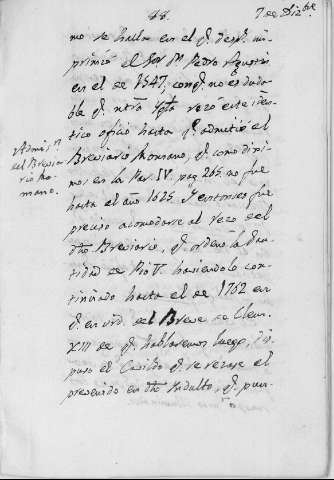 48.
7 de Diz.bre
mo se halla en el q.e desp.s im-
primió el Sor. Dn. Pedro Agustin
en el de 1547, conq.e no es duda-
ble q.e ntra Ygla rezó este iden-
tico oficio hasta q.e admitió el
Breviario Romano, q.e como diji-
mos en la Par. IV. pag. 265. no fue
hasta el año 1625. Y entonces fue
preciso acomodarse al rezo del
dho Breviario, q.e ordenó la San-
tidad de Pio V. haciendolo con-
tinuado hasta el de 1762 en
q.e en vrd. del Breve de Clem.
XIII de q.e hablaremos luego, dis-
puso el Cavildo q.e se rezase el
prevenido en dho Indulto, q.e pun-
Admis.n
del Brevia-
rio Ro-
mano.